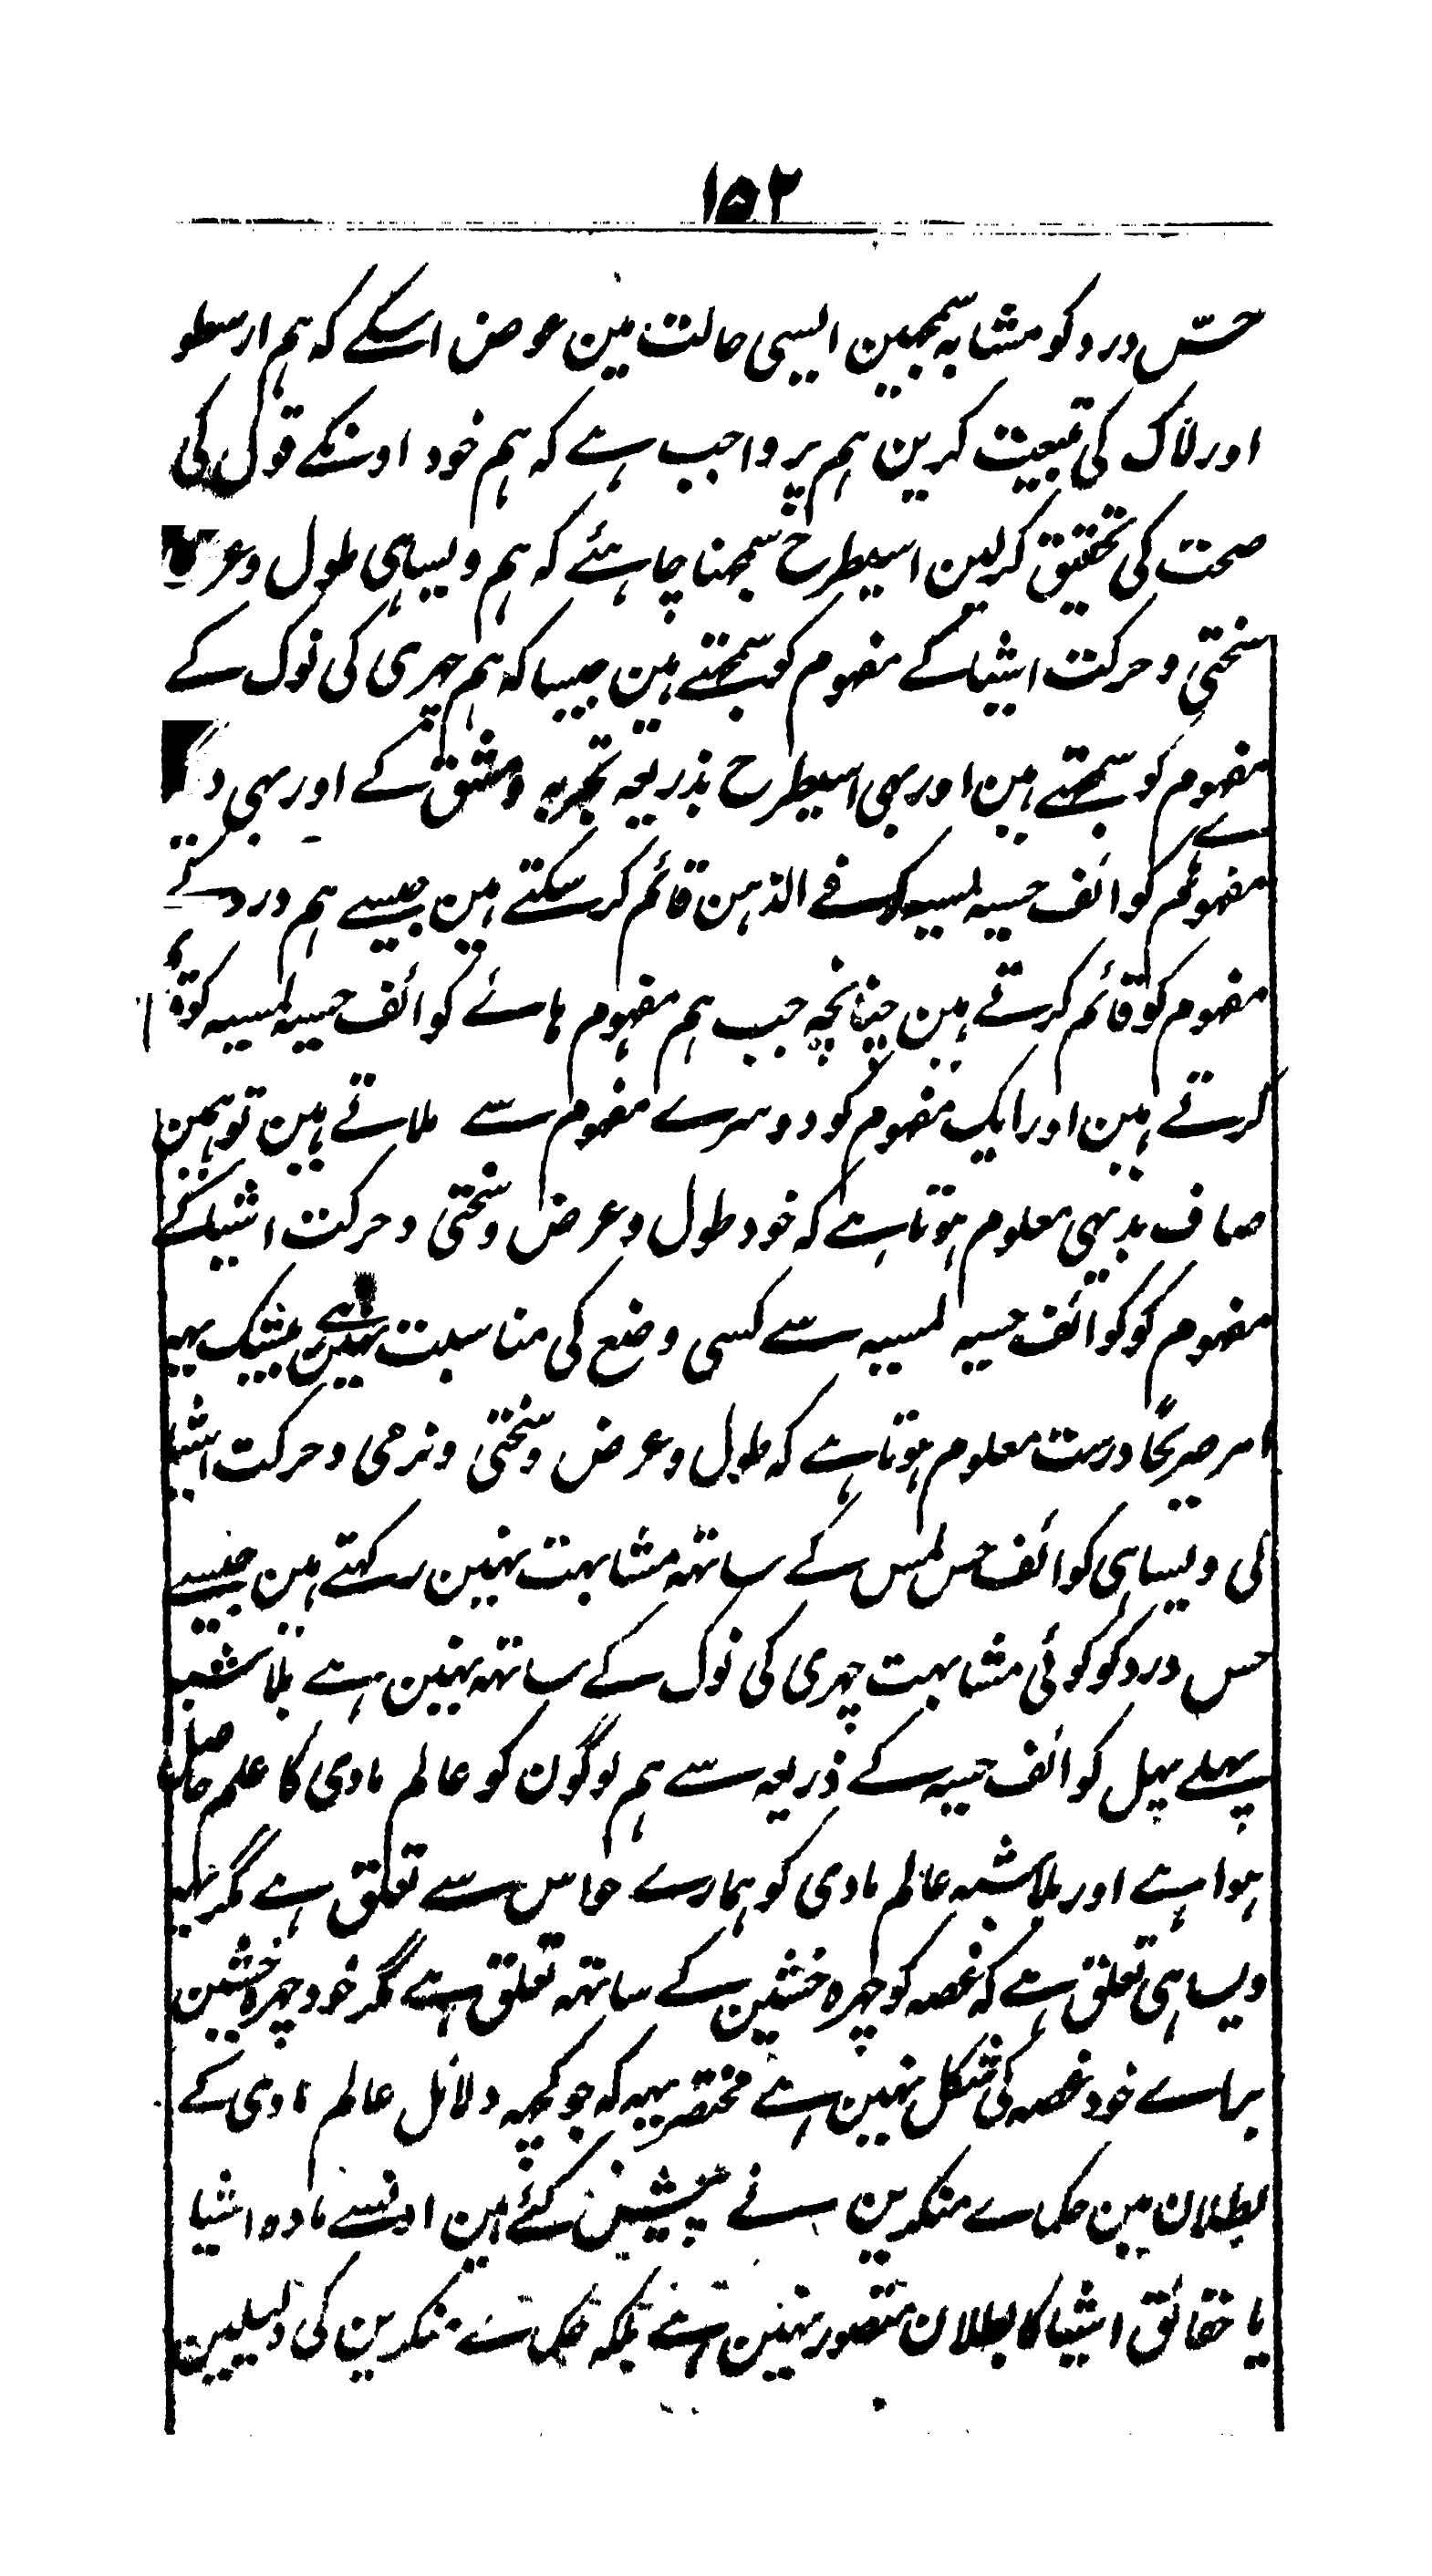 ۱۵۲
حسّ درد کو مشابہ سمجہین ایسی حالت مین عوض اسکے کہ ہم ارسطو
اور لاک کی تبعیت کرین ہم پر واجب ہے کہ ہم خود اونکے قول کی
صحت کی تحقیق کرلین اسیطرح سمجھنا چاہئے کہ ہم ویساہی طول و
سختی و حرکت اشیا کے مفہوم کو سمجھتے ہین جیسا کہ ہم چہری کی نوک کے
مفہوم کو سمجھتے ہین اور بہی اسیطرح بذریعہ تجربہ و مشق کے اور بہی
مفہوم کوائف حسیہ لمسیہ کے فے الذہن قائم کرسکتے ہین جیسے ہم درد کے
مفہوم کو قائم کرتے ہین چنانچہ جب ہم مفہوم ہائے کوائف حسیہ لمسیہ کو
کرتے ہین اور ایک مفہوم کو دوسرے مفہوم سے ملاتے ہین تو ہمین
صاف بدیہی معلوم ہوتا ہے کہ خود طول و عرض و سختی و حرکت اشیا کے
مفہوم کو کوائف حسیہ لمسیہ سے کسی وضع کی مناسبت نہین ہے بیشک یہہ
امر صریحًا درست معلوم ہوتا ہے کہ طول و عرض و سختی و نرمی و حرکت اشیا
کی ویساہی کوائف حس لمس کے ساتہہ مشابہت نہین رکہتے ہین جیسے
حس درد کو کوئی مشابہت چہری کی نوک کے ساتہہ نہین ہے بلا شبہہ
پہلے پہل کوائف حسیہ کے ذریعہ سے ہم لوگون کو عالم مادی کا علم حاصل
ہوا ہے اور بلاشبہہ عالم مادی کو ہمارے حواس سے تعلق ہے مگر یہہ
ویسا ہی تعلق ہے کہ غصہ کو چہرہ خشمین کے ساتہہ تعلق ہے مگر خود چہرہ خشمین
براے خود غصہ کی شکل نہین ہے مختصر یہہ کہ جو کچہہ دلائل عالم مادی کے
بطلان مین حکماے منکرین نے پیش کئے ہین اونسے مادہ اشیا
یا حقائق اشیا کا بطلان متصور نہین ہے بلکہ حکماے منکرین کی دلیلین